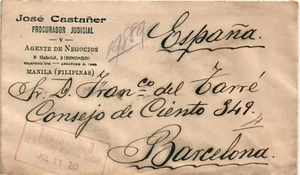 José Castañer
PROCURADOR JUDICIAL
Y
AGENTE DE NEGOCIOS
S Gabriel, 3 (BINONDO)
MANILA (FILIPINAS)
España.
Sr. D. Fran.co del Tarré
Consejo de Ciento 349.
Barcelona.
JUL 11 10